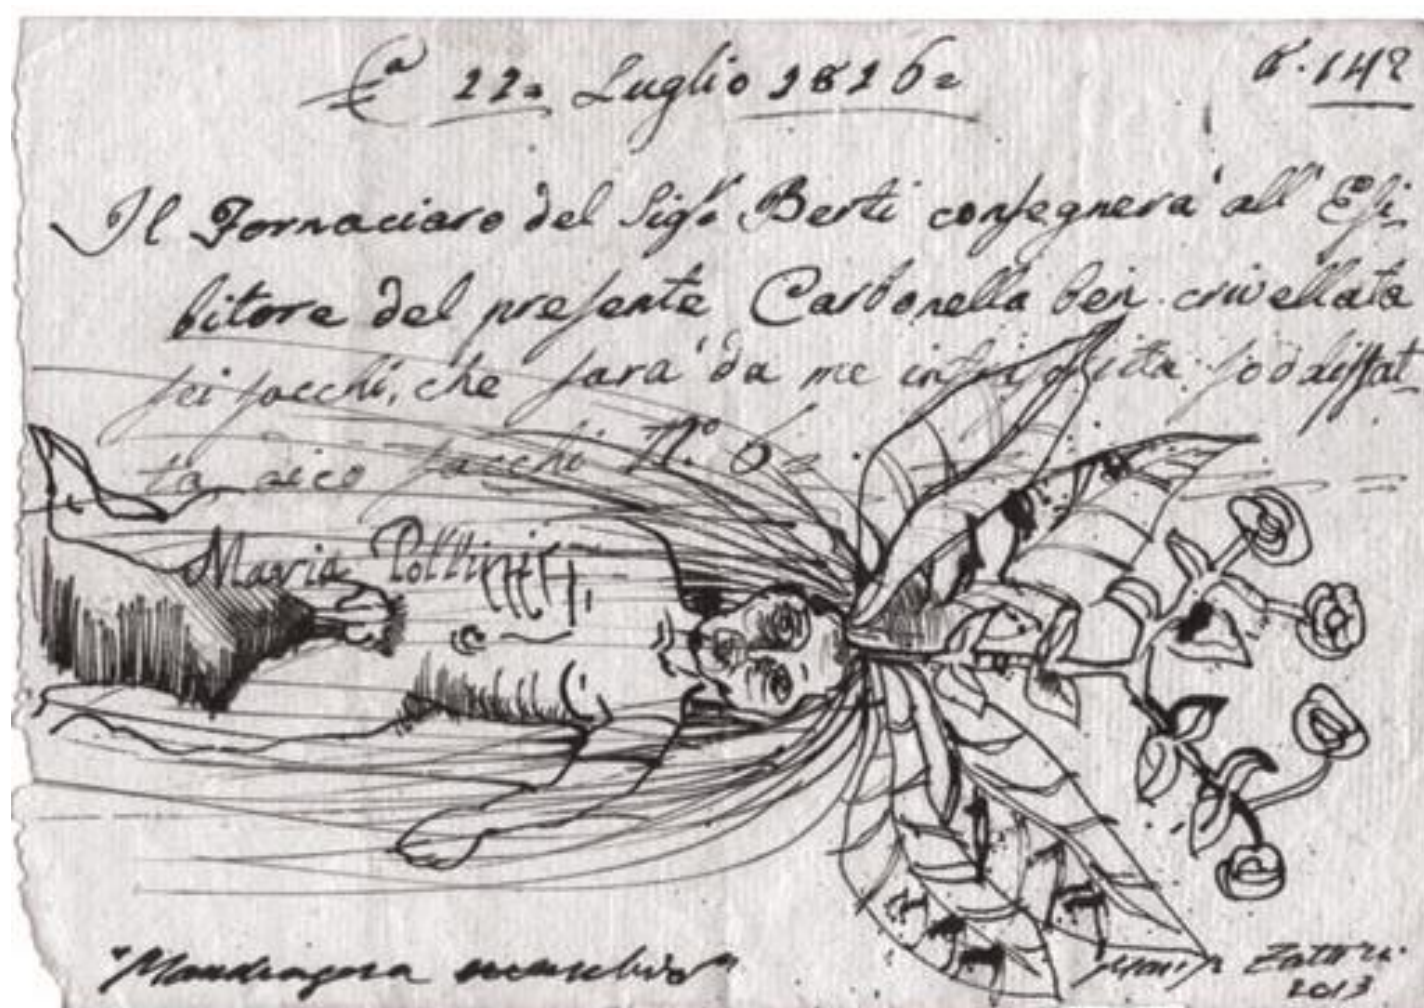 22= Luglio 1826=
148
Il Fornaciaro del Sig.r Berti conſegnerà all' Eſi-
bitore del preſente Carbonella ben crivellata
ſei ſacchi, che ſarà da me infraſcritta ſoddisfat-
ta dico ſacchi N.° 6=
Maria Pollini
"Mandragora maschio"
Zattini
2013